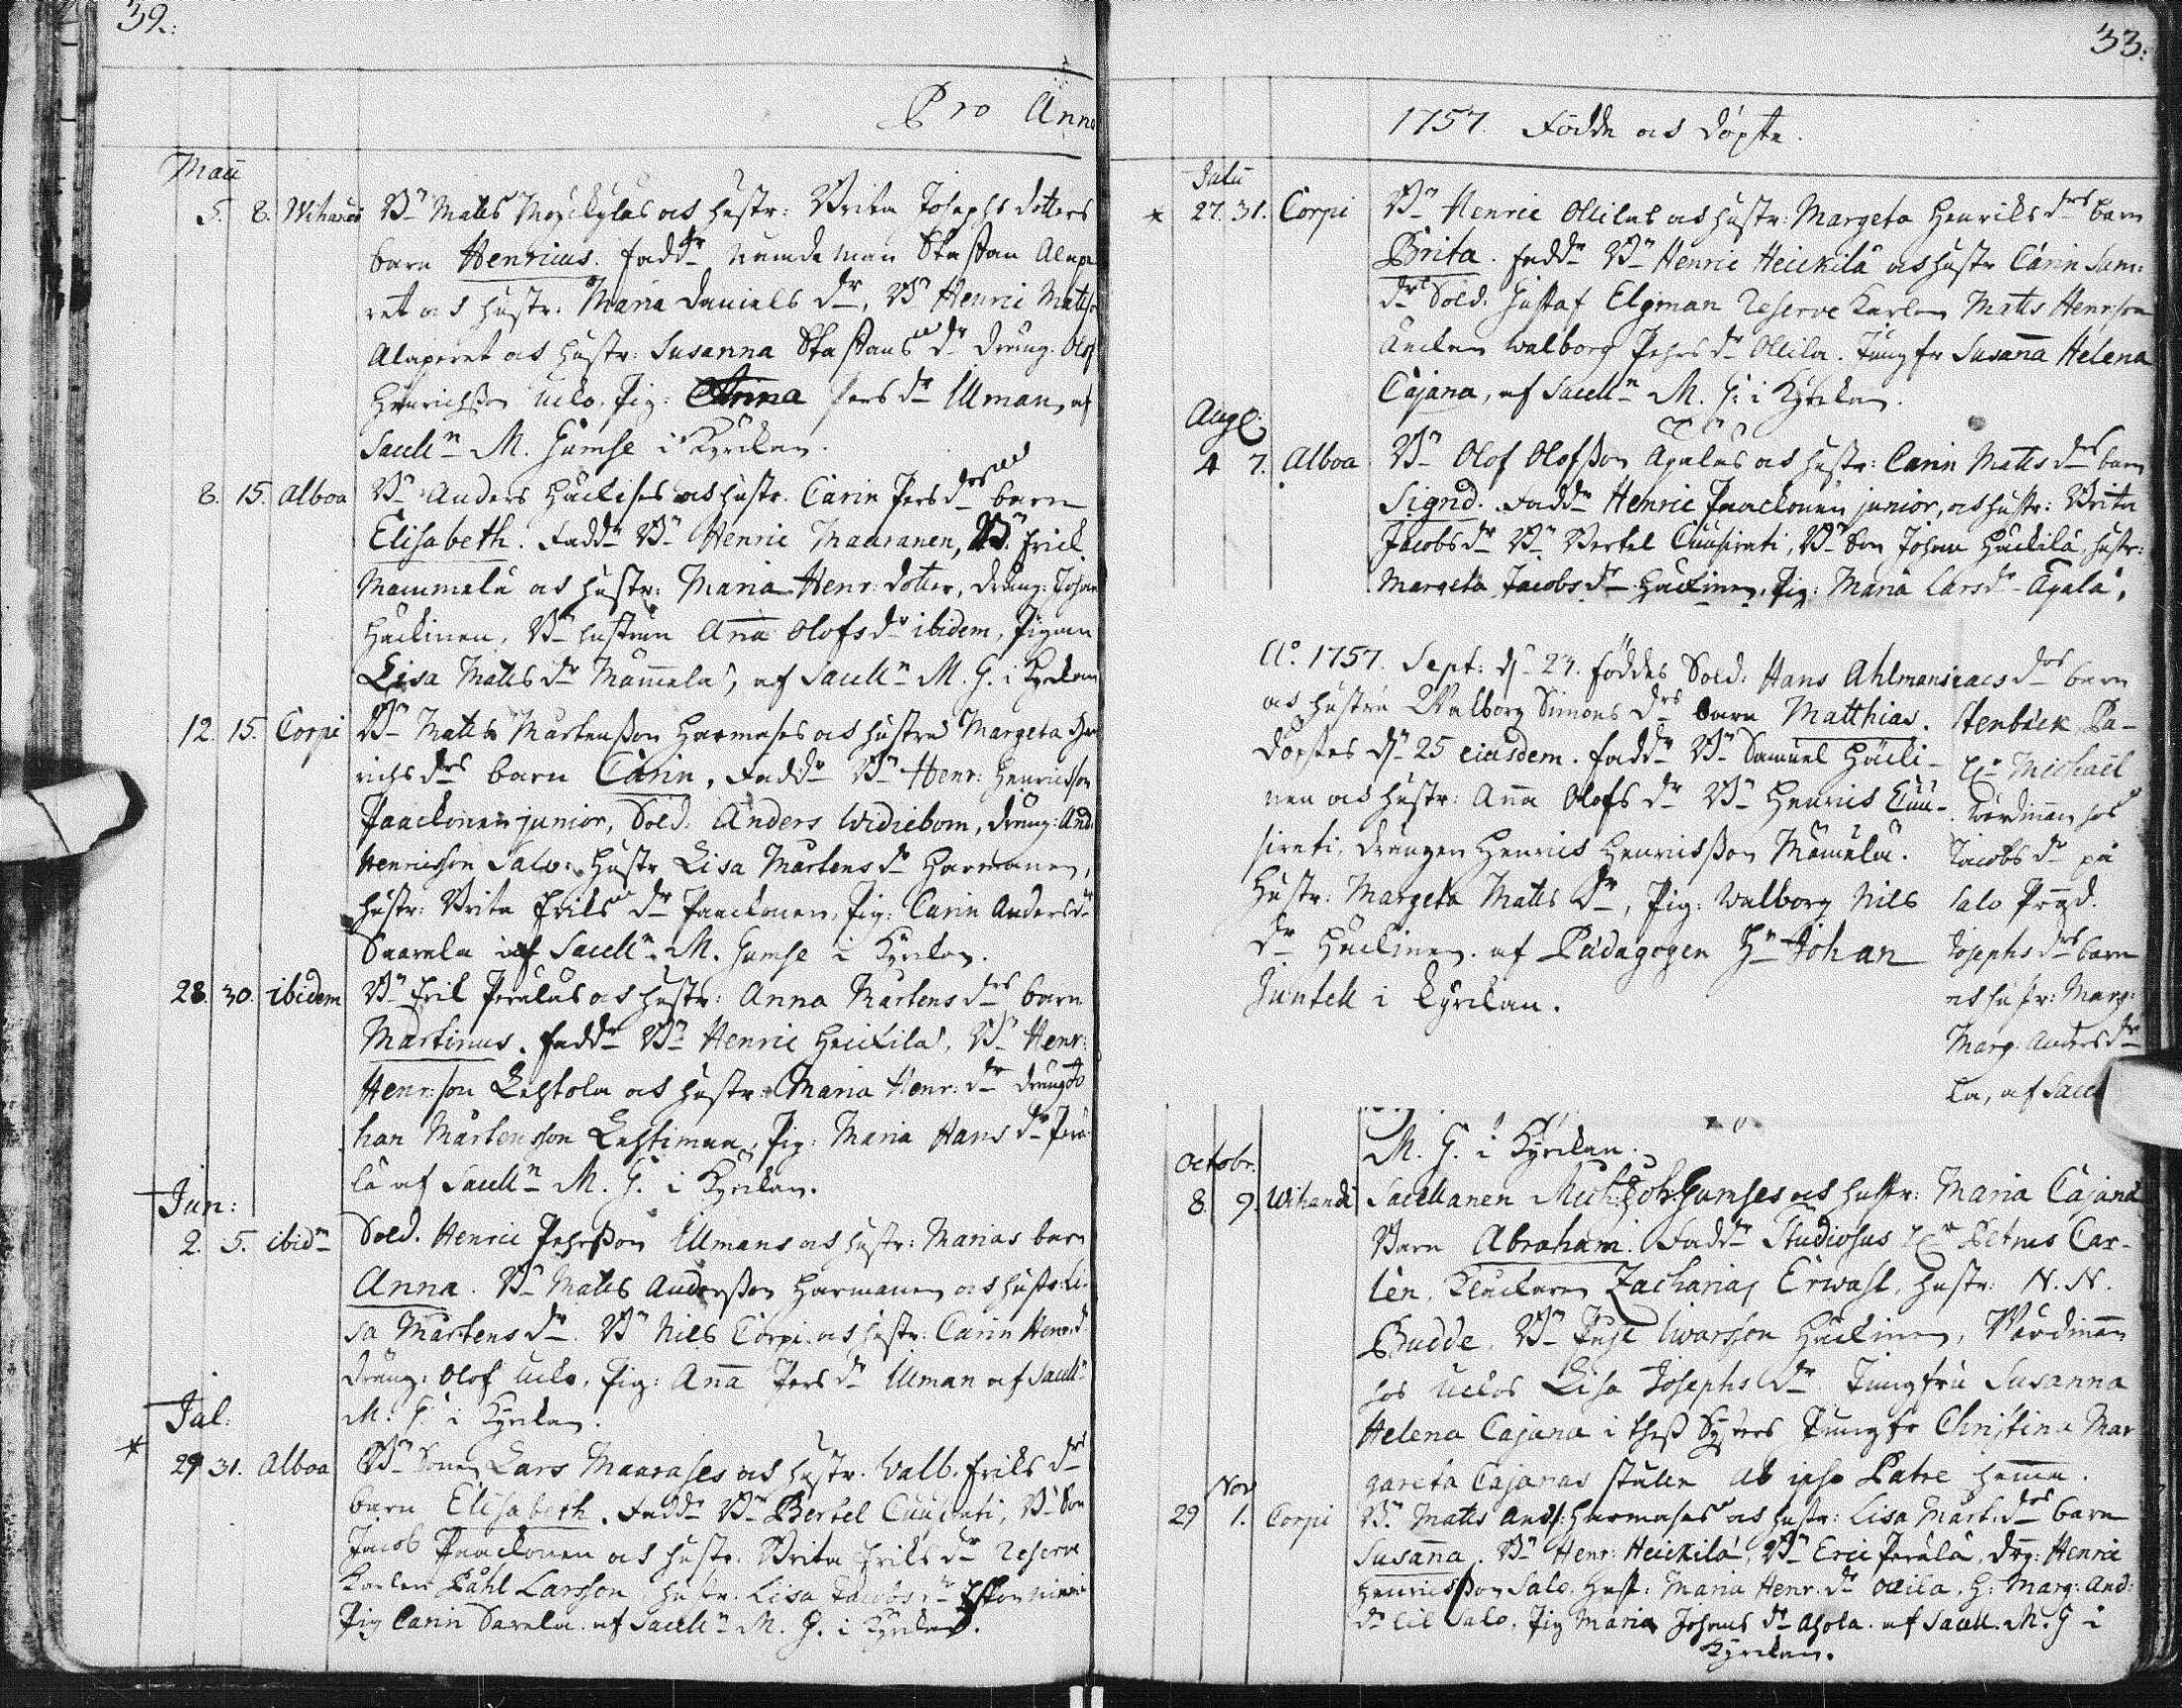 32.
Pro Anno
Maii
5. 8. Wihandi Bn Matts Moyckylas och hustr: Brita Josephs dotters
barn Henricus. Faddr nemdeman Staffan Alape
ret och hustr: Maria Daniels dr, Bn Henric Matts
Alaperet och hustr: Susanna Staffans dr dräng. Olof
Henrichsson Uclo. Pig: Anna Pers dr Ullman, af
Sacelln M. Gumse i Kyrckan.
8. 15. Alboa Bn Anders Häckises och hustr. Carin Pers drs barn
Elisabeth. Faddr Bn Henric Maaranen, Bn Erick
Mammela och hustr: Maria Henr: dotter, dräng: Johan
Häckinen, Bn hustrun Anna Olofs dr ibidem, Pigan
Lisa Matts dr Mammela, af Sacelln M. G. i Kyrckan
12. 15. Corpi Bn Matts Mårtensson Harmases och hustrus Margeta Hen
richs drs barn Carin, Faddr Bn Henr: Henricsson
Paackonen junior, Sold. Anders Widiebom, dräng: And.
Henricsson Salo: Hustr Lisa Mårtens dr Harmanen,
hustr: Brita Eriks dr Paackonen, Pig: Carin Anders dr
Saarela af Sacelln M. Gumse i Kyrckan.
28. 30. ibidem Bn Erik Peraläs och hustr: Anna Mårtens drs barn
Martinus. Faddr Bn Henric Heickilä, Bn Henr:
Henr:son Lehtola och hustr: Maria Henr: dr dräng Jo
han Mårtensson Lehtiman, Pig: Maria Hans dr Perä
lä af Sacelln M. G. i Kyrckan.
Jun:
2. 5. ibidm Sold. Henric Pehrsson Ullmans och hustr: Marias barn
Anna. Bn Matts Andersson Harmanen och hustr: Li
sa Mårtens dr. Bn Nils Corpi och hustr: Carin Henr: dr
dräng: Olof Uclo, Pig: Anna Pers dr Ullman af Sacelln
M. G. i Kyrckan.
Jul:
* 29 31. Alboa Bn Sonen Lars Maarases och hustr. Walb. Eriks drs
barn Elisabeth. Faddr Bn Bertel Cuusirati, Bn Son
Jacob Paackonen och hustr. Brita Eriks dr Reserve
Karlen Påhl Larsson, hustr. Lisa Jacobs dr
Pig Carin Sarela. af Sacelln M. G. i Kyrckan.
33.
1757. Födde och döpte.
Julii
* 27. 31. Corpi Bn Henric Ollilas och hustr: Margeta Henriks drs barn
Brita. Faddr Bn Henric Heickilä och hustr Carin Sam:
dr Sold. Gustaf Elgman Reserve Karlen Matts Henrsson
Enckan Walborg Pehrs dr Ollila. Jungfr Susanna Helena
Cajana, af Sacelln M. G. i Kyrckan.
Aug:
4 7. Alboa Bn Olof Olofsson Agalas och hustr: Carin Matts drs barn
Sigrid. Faddr Henric Paackonen junior, och hustr: Brita
Jacobs dr Bn Bertel Cuusirati, Bn Son Johan Häckilä, hustr:
Margeta Jacobs dr Häckinen, Pig: Maria Lars dr Agala,
Ao. 1757. Sept: dn 23. föddes Sold: Hans Ahlmans
och hustru Walborg Simons drs barn Matthias.
döptes dn 25 eiusdem. Faddr Bn Samuel Häcki-
nen och hustr: Anna Olofs dr Bn Henrics Cuu-
sirati, drängen Henrics Henricsson Mämelä.
Hustr: Margeta Matts dr, Pig: Walborg Nils
dr Häckinen. af Pädagogen Hn Johan
Juntell i Kyrckan.
iacs drs barn
Stenbäck Pa-
Michaël
Wärdinnan hos
Jacobs dr på
Salo Prgd.
Josephs drs barn
och hustr: Marg:
Marg: Anders dr
la, af Sacell
M. G. i Kyrckan.
Octobr.
8. 9. Wihandi Sacellanen Mich: Joh: Gumses och hustr: Maria Cajana
Barn Abraham. Faddr Studiosus Petrus Car-
lén, Klackaren Zacharias Erwast, hustr: N. N.
Budde. Bn Iwarsson Häckinen, Wärdinnan
hos Uclos Lisa Josephs dr. Jungfru Susanna
Helena Cajana i thess Systers Jungfr Christina Mar
gareta Cajanas ställe ab ipso Patre hemma.
Nov
29 1. Corpi Bn Matts And: Harmases och hustr: Lisa Mårt: drs barn
Susanna. Bn Henr: Heickilä, Bn Eric Perälä, drg: Henric
Henricsson Salo. Hust: Maria Henr. dr Ollila. H: Marg: And:
dr lil Salo. Pig Maria Johans dr Ahola. af Sacell. M. G i
Kyrckan.